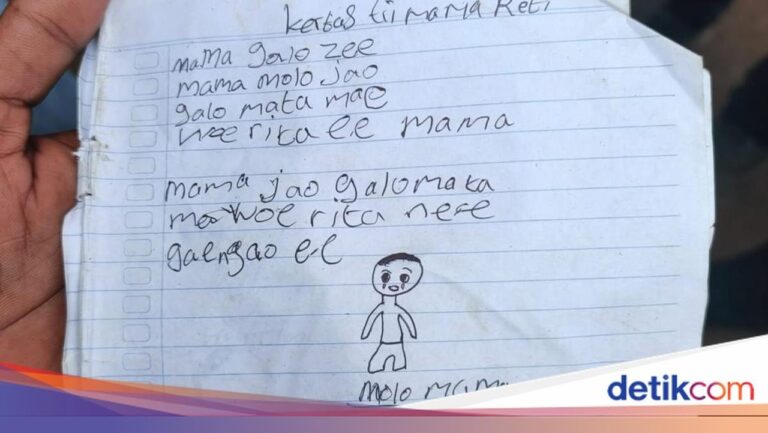 kertas tii mama Reti
mama galo zee
mama molo jao
galo mata mae
woe rita e.e mama
mama jao galo mata
mae woe rita ne e e
gae ngao e.e
molo mama
detikcom